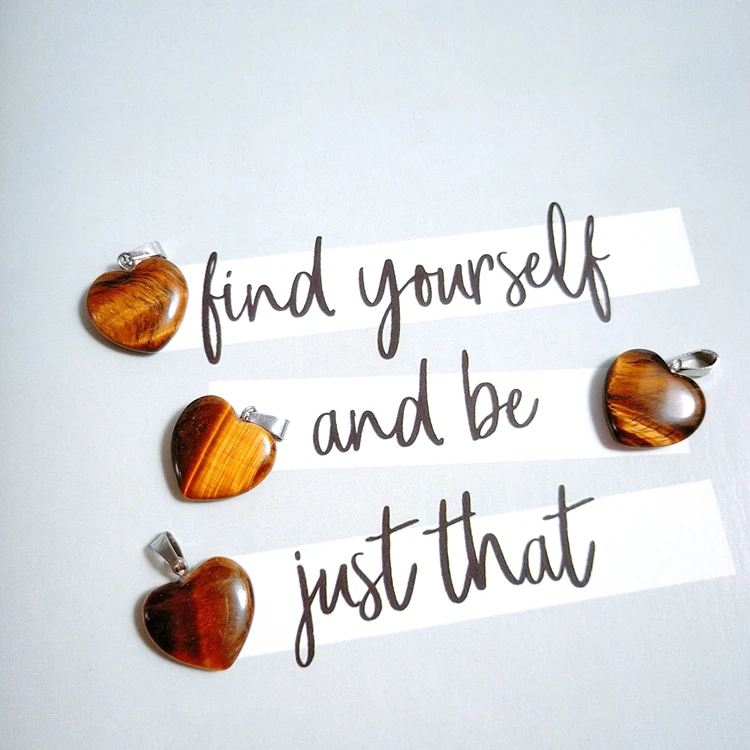 find yourself
and be
just that